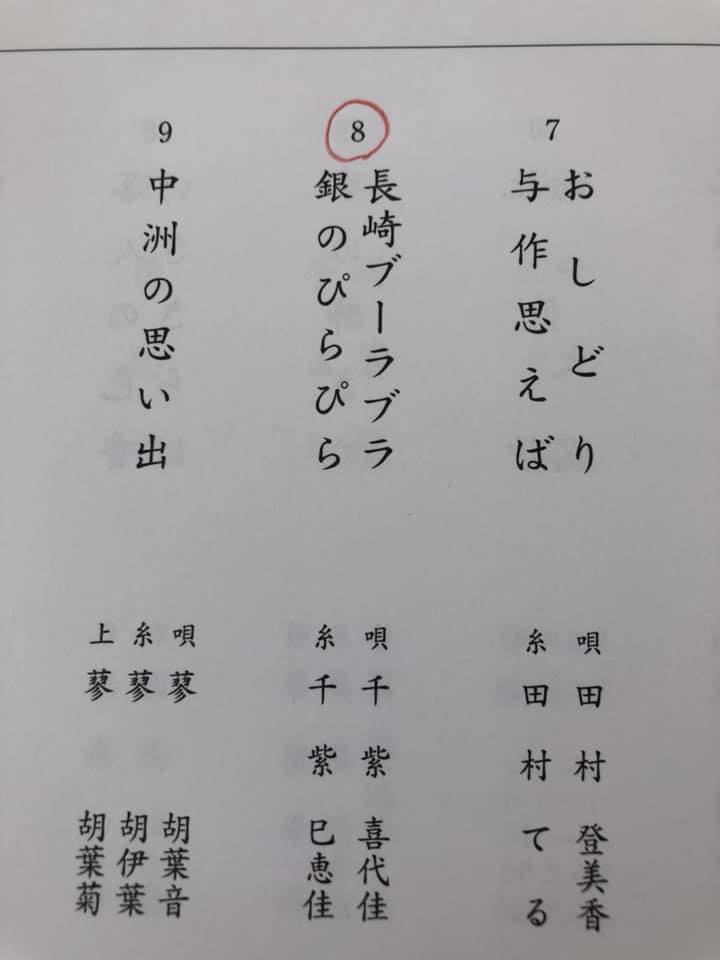 7
おしどり
与作思えば
唄 田村 登美香
糸 田村 てる
8
長崎ブーラブラ
銀のぴらぴら
唄 千紫 喜代佳
糸 千紫 巳恵佳
9
中洲の思い出
唄 蓼 胡葉音
糸 蓼 胡伊葉
上 蓼 胡葉菊